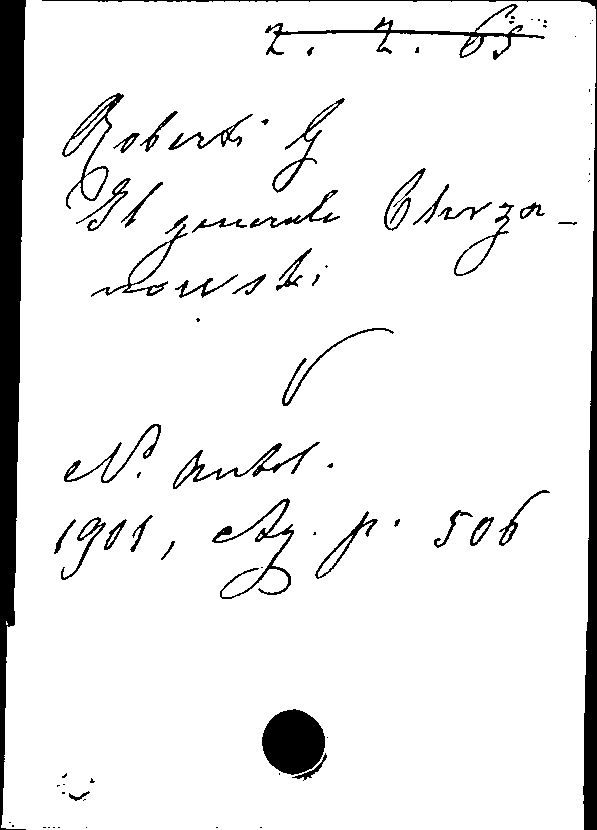 2. 2. 65
Roberti G
Il generale Chrza-
nowski
N. Antol.
1901, Ag. p. 506